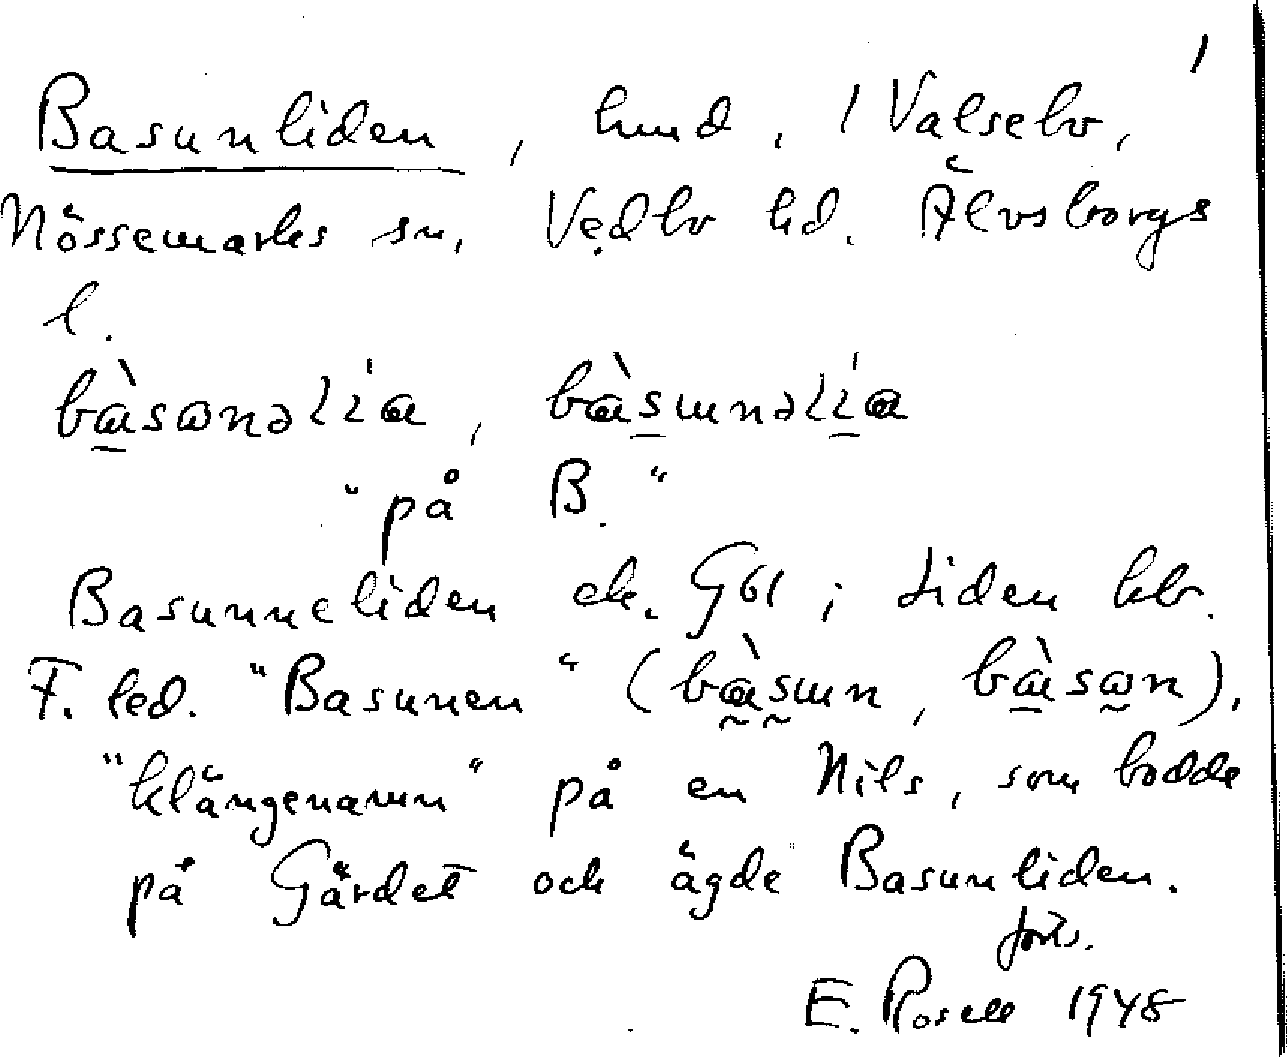 1
Basunliden, hmd. 1 Valsebo,
Nössemarks sn, Vedbo hd. Älvsborgs
l.
bàsɷnəlía, bàsɯnəlía
"på B."
Basunneliden ek. G61; Liden kbr.
F. led. "Basunen" (bàsɯn, bàsɷn).
"klängenamn" på en Nils, som bodde
på Gärdet och ägde Basunliden.
forts.
E. Rosell 1948